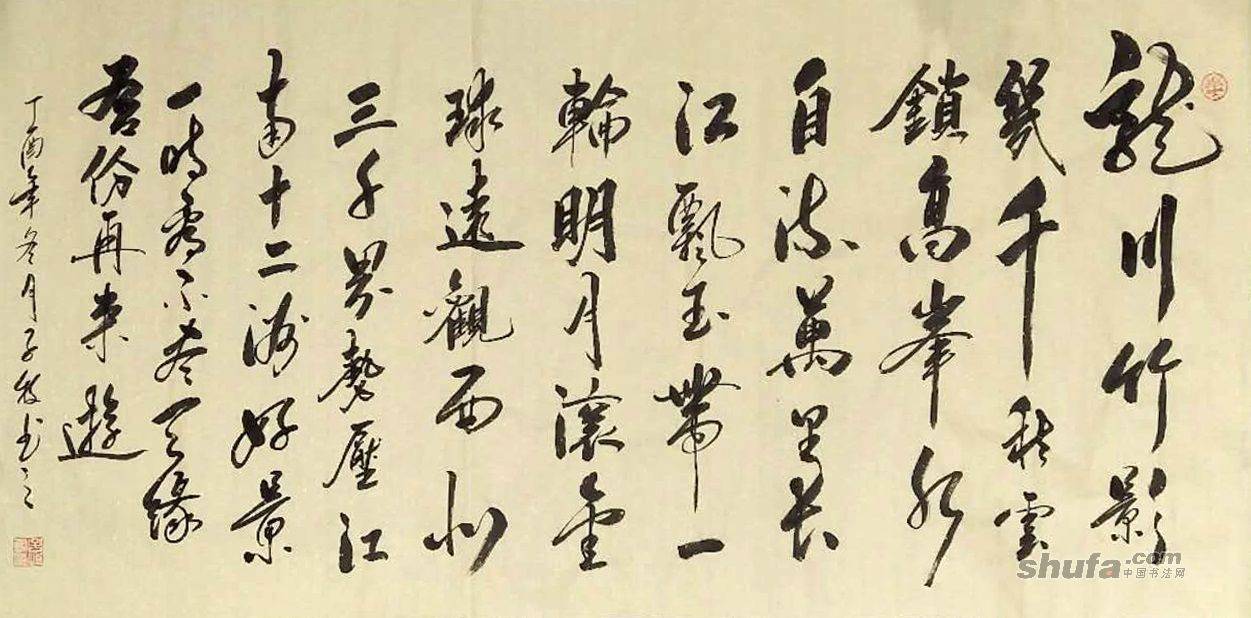 龍川竹影
幾千秋雲
鎖高峯水
自流萬里長
江飄玉帶一
輪明月滾金
球遠觀西北
三千界勢壓江
南十二洲好景
一時看不盡天緣
份再來遊
丁酉年冬月子
shufa.com
中国书法网